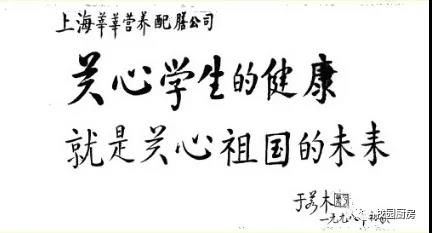 上海莘莘营养配膳公司
关心学生的健康
就是关心祖国的未来
于若木
一九九八、
校园厨房